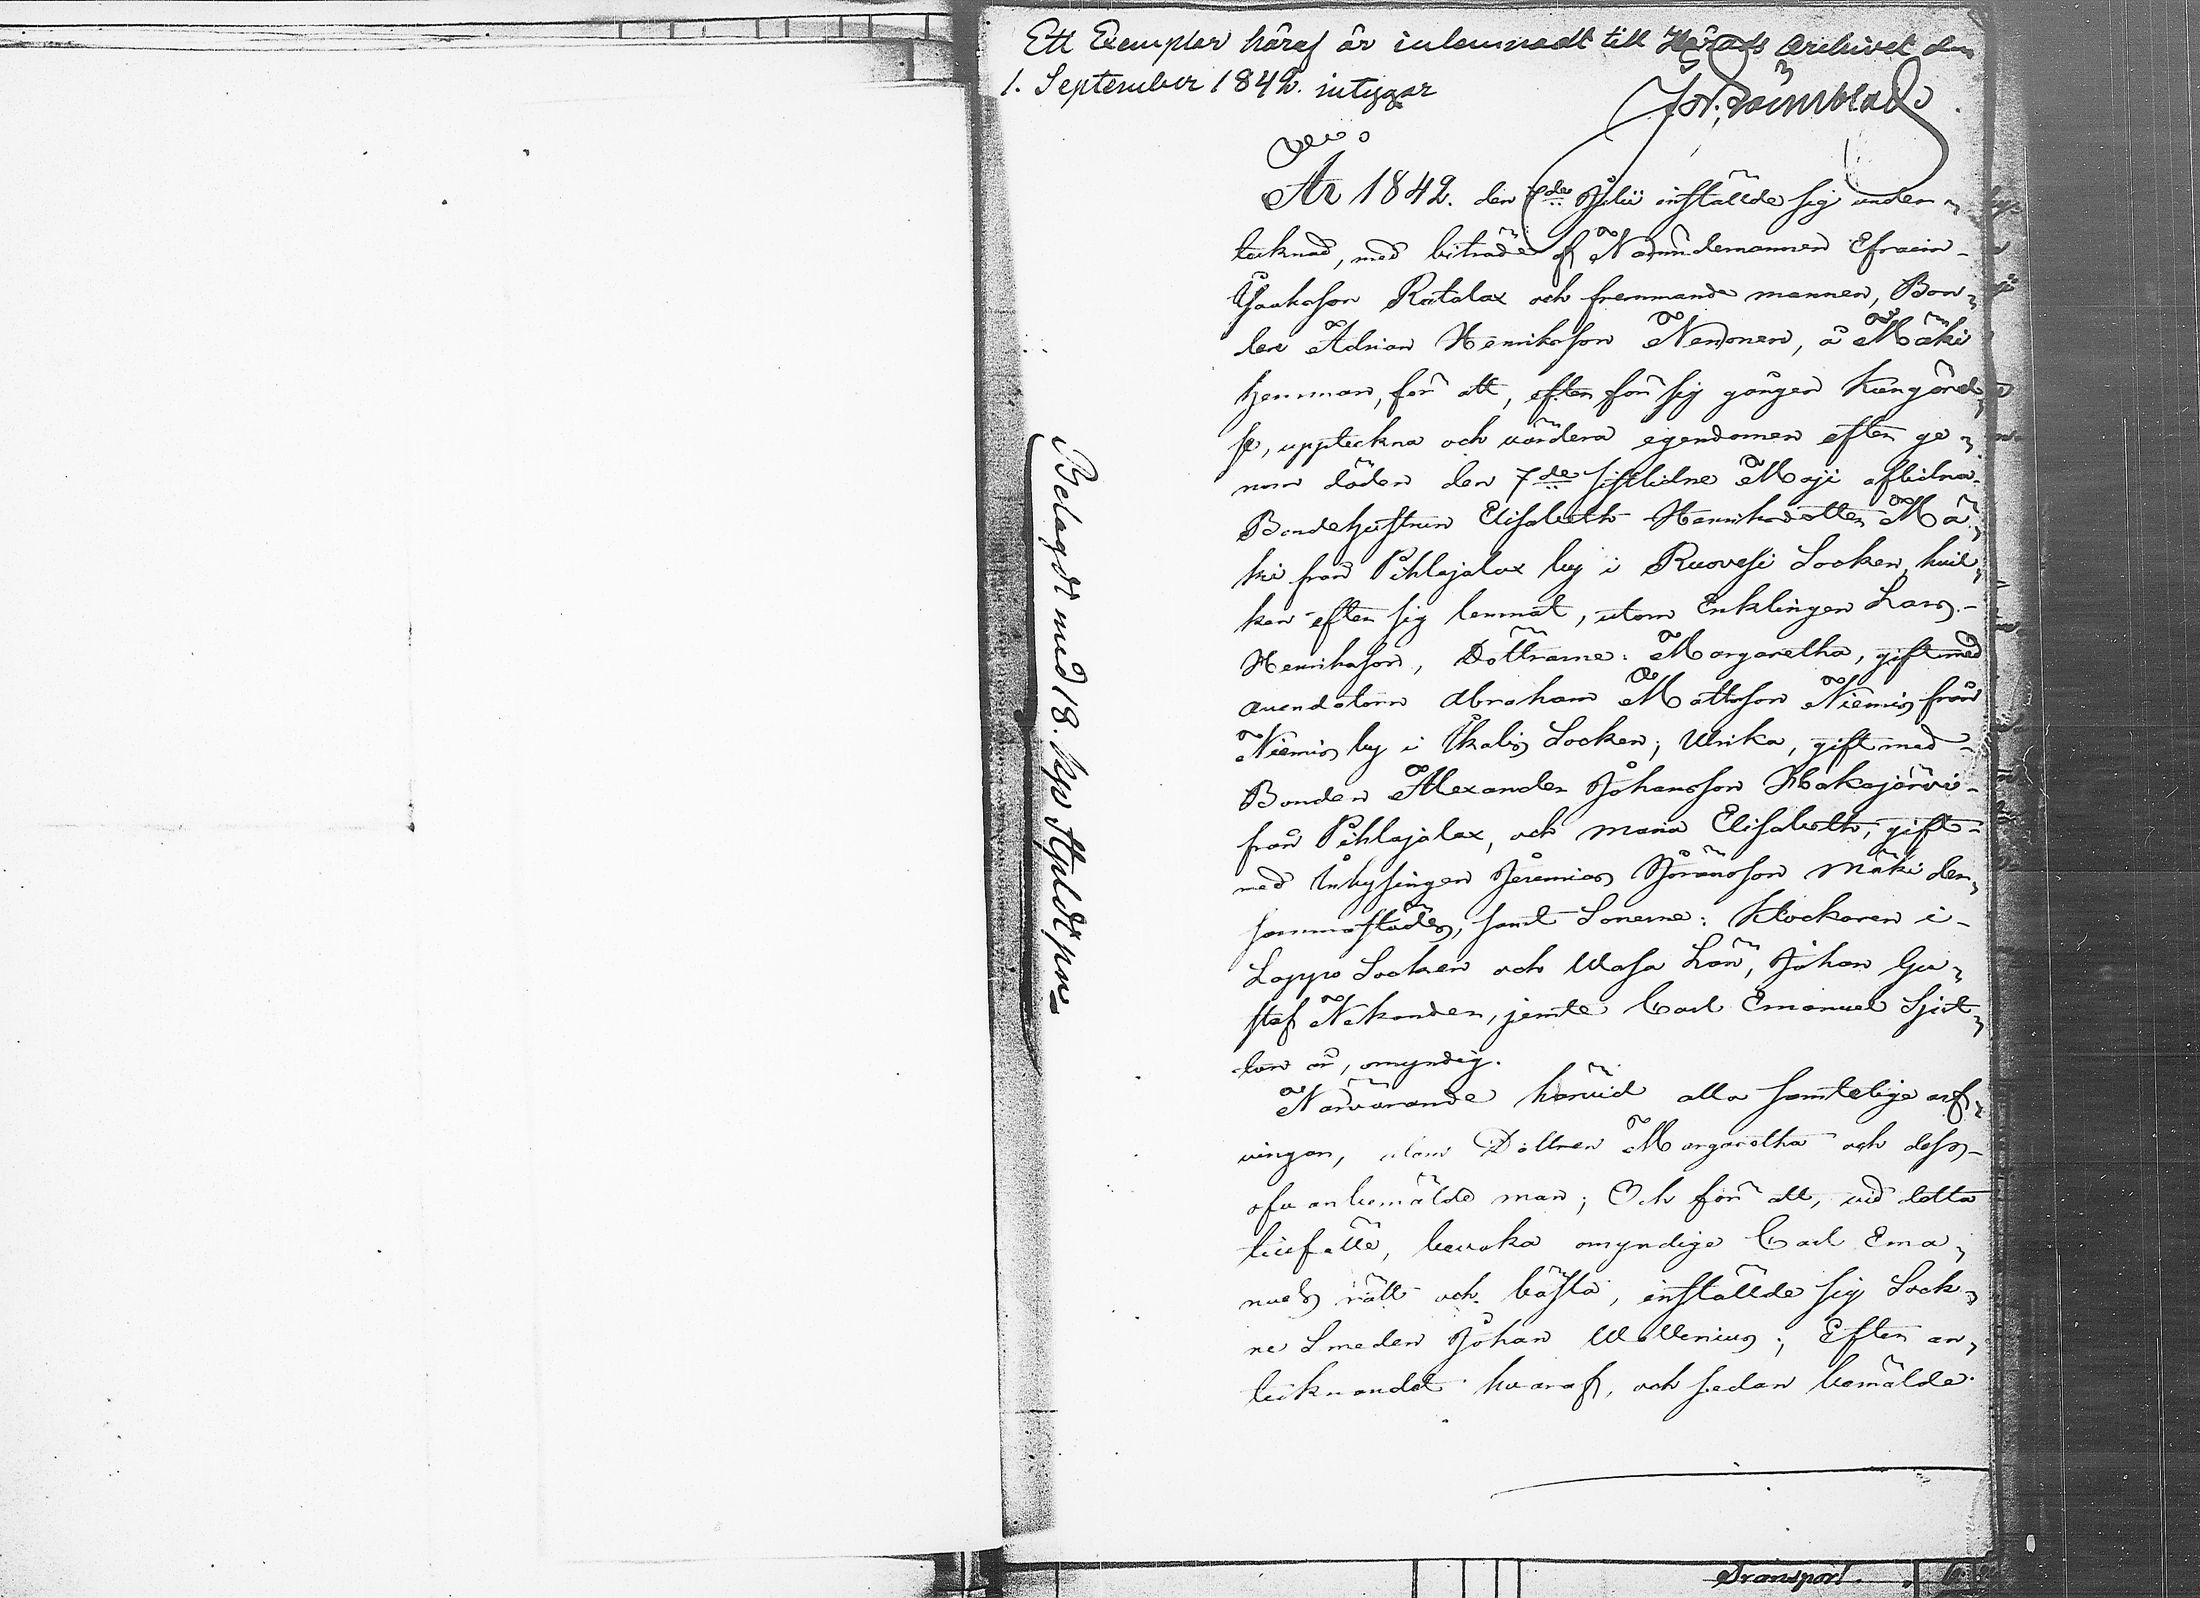 Ett Exemplar häraf är inlemnadt till Härads Archivet den
1. September 1842. intygar
År 1842. den 7de Julii inställde sig under-
tecknad, med biträde af Nämndemannen Efraim
Isaksson Ratalax och fremmande mannen, Bon-
den Adrian Henriksson Nenonen, å Mäki
hemman, för att, efter för sig gången kungörel-
se, uppteckna och värdera egendomen efter ge-
nom döden den 7de sistlidne Maji aflidna
Bondehustrun Elisabeth Henriksdotter Mä-
ki från Pihlajalax by i Ruovesi Socken, hvil-
ken efter sig lemnat, utom Enklingen Lars
Henriksson, Döttrarne: Margaretha, gift med
arendatorn Abraham Mattsson Niemis från
Niemis by i Ikalis Socken; Ulrika, gift med
Bonden Alexander Johansson Hakajärvi
från Pihlajalax, och Maria Elisabeth, gift
med Inhysingen Jeremias Jöransson Mäki der-
sammastädes, samt Sönerne: Klockaren i
Lappo Socken och Wasa Län, Johan Gu-
staf Nekanden, jemte Carl Emanuel Sjut-
ton år, omyndig.
Närvarande härvid alla samtelige arf-
vingar, utom Dottren Margaretha och dess
ofvanbemälde man; Och för att, vid detta
tillfälle, bevaka omyndige Carl Ema-
nuels rätt och bästa, inställde sig Sock-
ne Smeden Johan Wallenius; Efter an-
tecknandet hvaraf, och sedan bemälde
Belagdt med 18. kop
Transport.